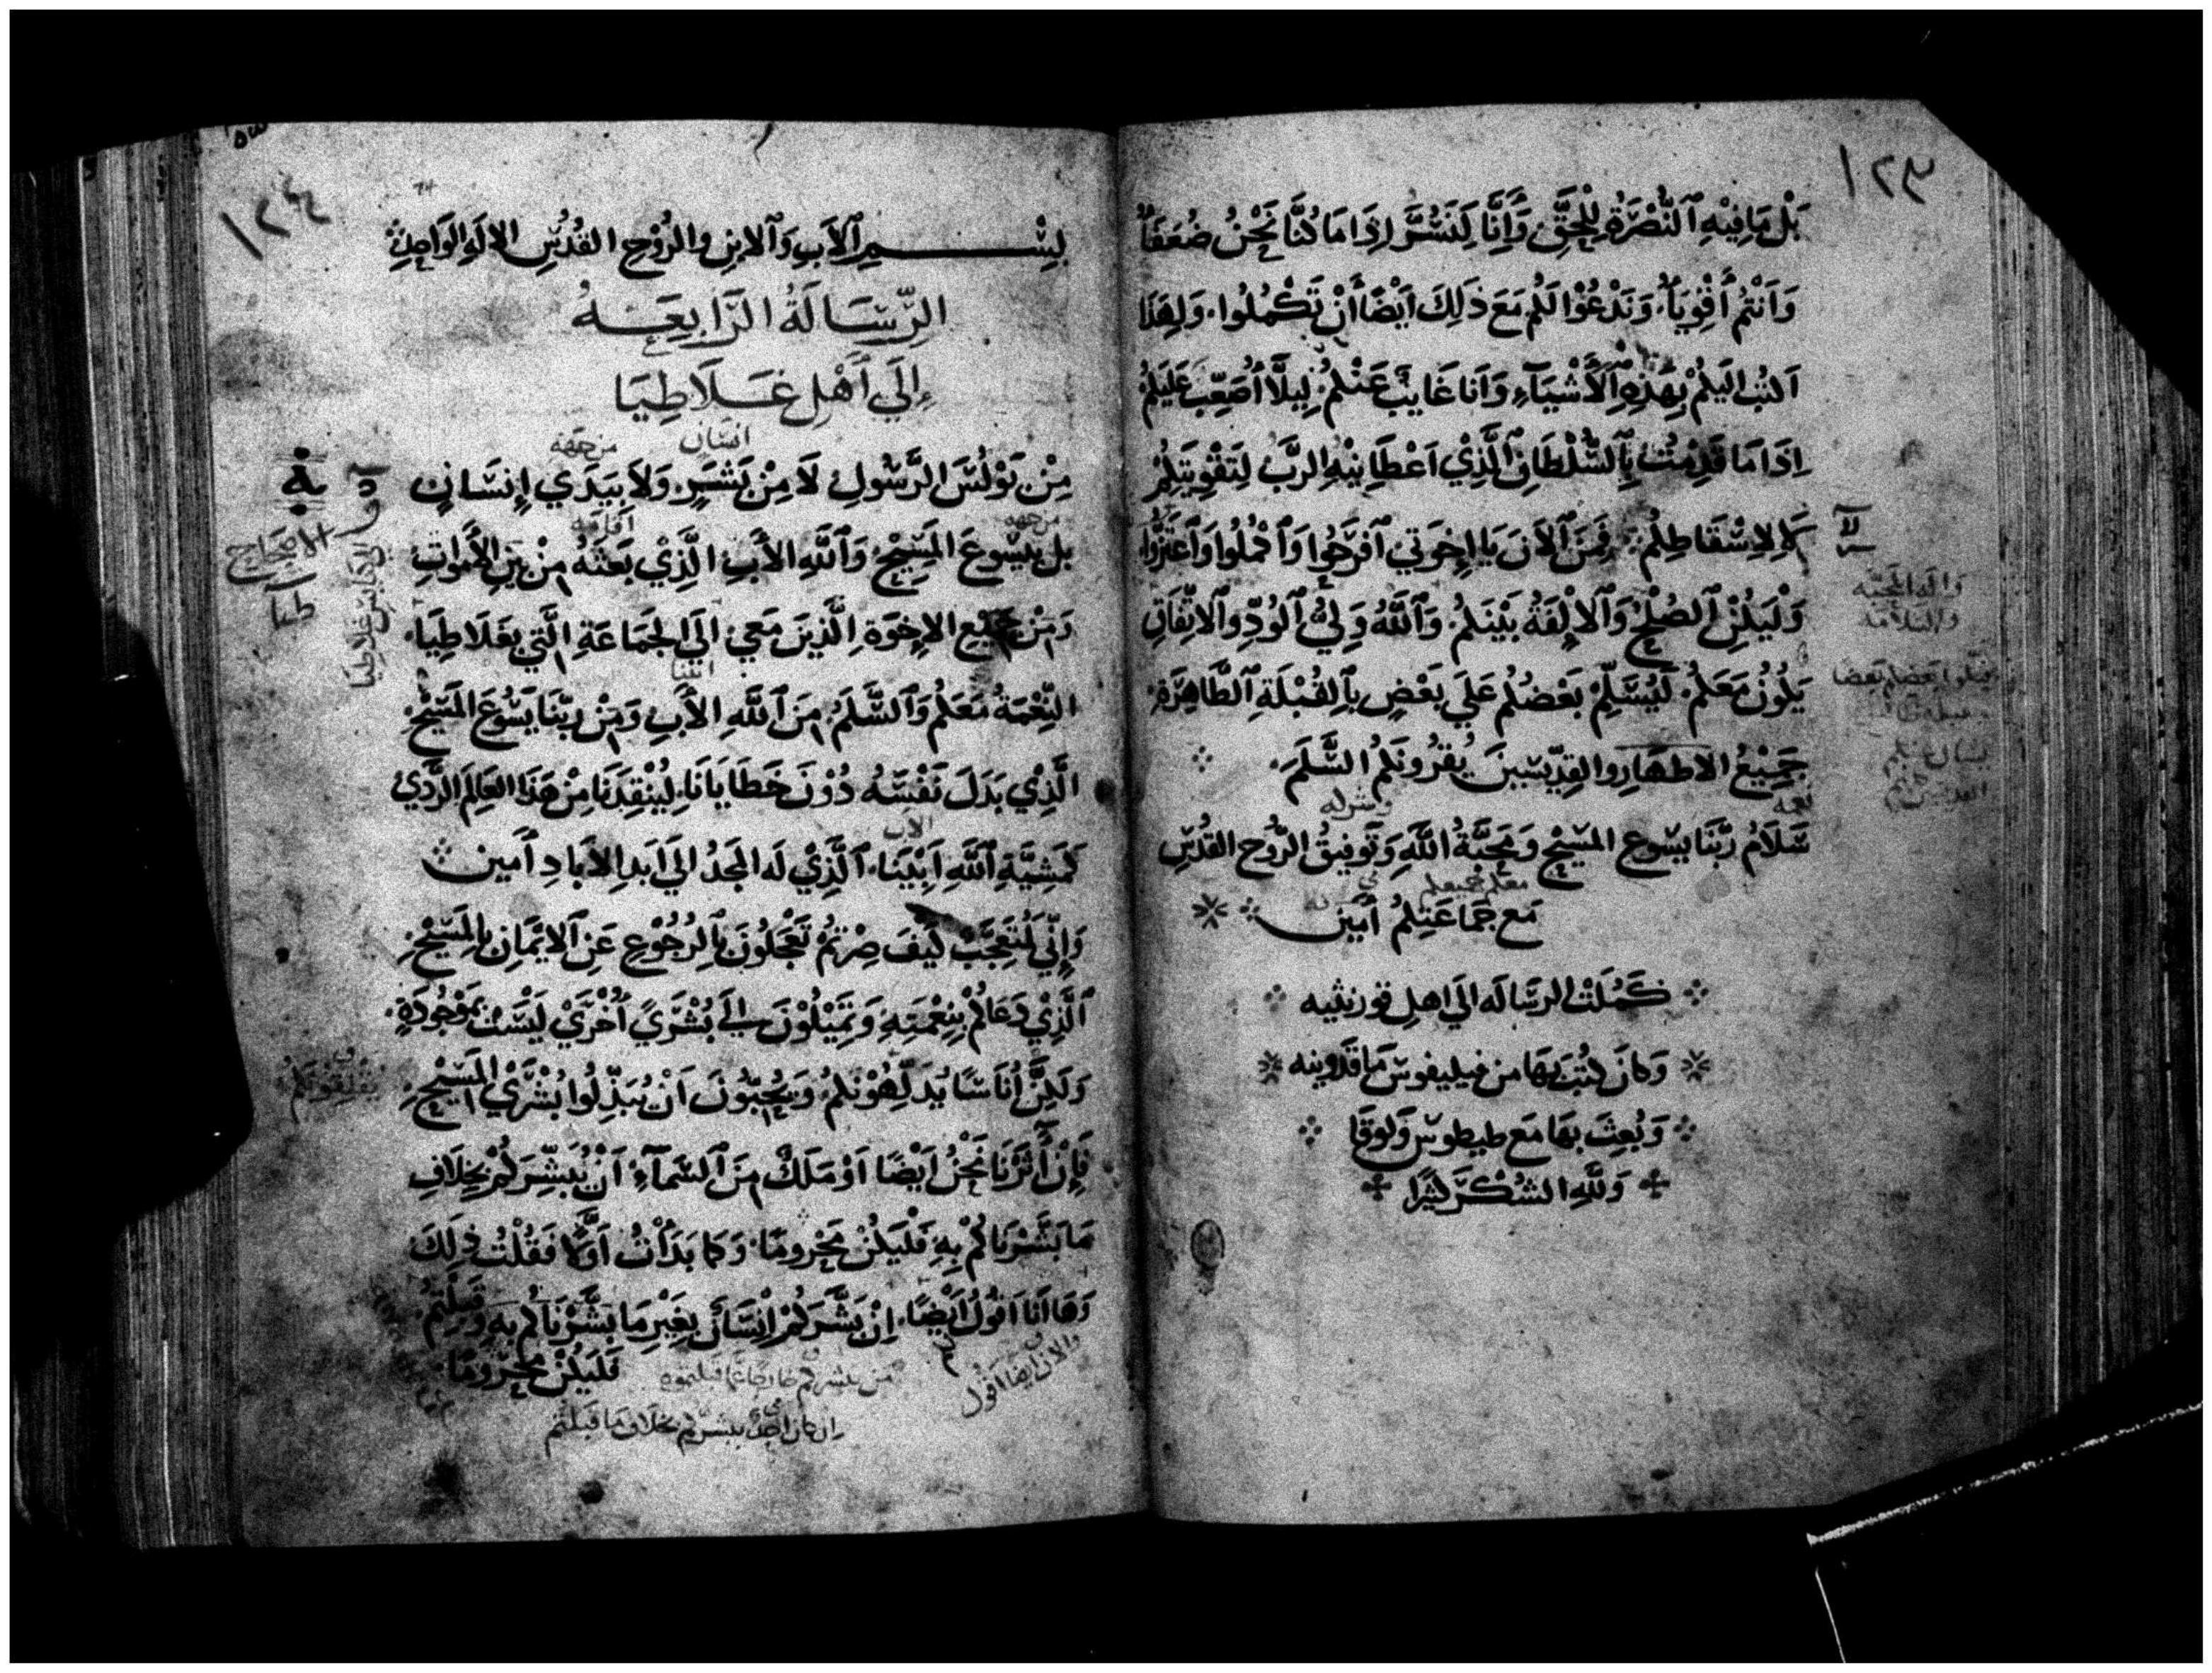 ١٢٣
بَلْ مَا فِيْهِ ٱلنُّصْرَةُ لِلْحَقِّ وَأَنَّا لَنُسَرُّ إِذَا مَا كُنَّا نَحْنُ ضُعَفَآءُ
وَأَنْتُمْ أَقْوِيَآءُ وَنَدْعُوْا لَكُمْ مَعَ ذَلِكَ أَيْضًا أَنْ تَكْمُلُوا، وَلِهَذَا
اَكتُب اِلَيكُمْ بِهَذِهِ ٱلْأَشْيَآءِ وَاَنا غَايِبٌ عَنْكُمْ لِيلَّا أُصَعِّبَ عَلَيكُمْ
اِذَا مَا قَدِمْتُ بِٱلسُّلْطَانِ ٱلَّذِيْ اَعْطَانِيْهِ الرَّبُّ لِتَقْوِيَتِكُمْ
لَا لِاِسْقَاطِكُمْ فَمِنَ ٱلْآنَ يَا إِخوَتي ٱفْرَحُوا وَٱكْمُلُوا وَٱعْتَزُّوا
وَلْيَكُنِ ٱلصُلْحُ وَٱلْإِلْفَةُ بَيْنَكُمْ وَٱللَّهُ وَلِيُّ ٱلْوُدِّ وٱلاتِّفَاقِ
يَكُونُ مَعَكُمْ لَيُسَلِّمْ بَعْضُكُمْ عَلَي بَعْضٍ بِٱلقُبْلَةِ ٱلطَّاهِرَةِ
جَمِيْعُ الاَطهَارِ والقِدِّيسِينَ يُقرُونَكُمُ السَّلَمَ
سَلَامُ رَبِّنَا يَسُوعِ المَسِيْحِ وَمَحَبَّةُ اللَّهِ وَتَوفِيقُ الرُّوحِ القُدُسِ
معكم جميعكم
مَع جَمَاعَتِكُمْ أَمِين
كَمُلَتْ الرسَالَه الي اهلِ قورنثيه
وَكانَ كُتبَ بِهَا من فيليفوس مَاقَدونيه
وَبُعِثَ بهَا مَع طيطوس وَلوقَا
وَلِلَّهِ الشُكْرُ كَثيرًا
والله المحبّه
والسلامه
قبّلوا بعضكم بعضا
١٢٤
بِسْمِ ٱلْأَبِ وَٱلْابْنِ وَالرُوْحِ القُدُسِ الالَهِ الوَاحِدِ
الرِّسَالَةُ الرَّابِعَةُ
إِلَي أَهْلِ غَلَاطِيَا
انسَان من جهه
مِنْ بَوْلُسَ الرَّسُولِ لَا مِنْ بَشَرٍ وَلَا بِيَدَي إِنسَانٍ
من جهه اقامه
بل بِيَسُوعَ المَسِيْحِ وَٱللَّهِ الأَبِ الَّذِيْ بَعَثَهُ مِنْ بَيْنِ الأَمْوَاتِ
وَمِنْ جَمِيْعِ الاِخوَةِ الَّذِينَ مَعِي اِلَي الجَمَاعَةِ الَّتِي بِغَلَاطِيَا
النِّعْمَةُ مَعَكُمْ وَٱلسَّلَمُ مِنَ ٱللَّهِ الأَبِ وَمِنْ رَبِّنَا يَسُوعَ المَسِيْحِ
الَّذِيْ بَدَلَ نَفْسَهُ دُوْنَ خَطَايَانَا لِيُنْقِذَنَا مِنْ هَذَا العَالَمِ الرَّدِيُ
الاب
كَمَشِيَّةِ ٱللَّهِ اَبِيْنَا ٱلَّذِيْ لَه المَجْدُ الَي اَبدِ الاَبَادِ أَمين
وَإِنِّي لَمُتَعَجِّبٌ كَيْفَ صِرْتُمْ تَعْجَلُونَ بِٱلرُجُوْعِ عَنِ ٱلايْمَانِ بِالْمَسِيْحِ
ٱلَّذِيْ دَعَاكُمْ بِنِعْمَتِهِ وَتَمِيْلُوْنَ اِلَي بُشْرَيً أُخْرَيْ لَيْسَتْ بمَوْجُودَةٍ
وَلَكِنَّ أُنَاسًا يُدَلِّهُوْنَكُمْ وَيُحِبُّونَ اَنْ يُبَدِّلُوا بُشْرَيْ المَسِيْحِ
فَإِنْ أَثَرْنَا نَحْنُ اَيْضًا اَوْ مَلَكٌ مِنَ ٱلسَّمَآءِ اَنْ نُبَشِّرَكُمْ بِخِلَافِ
مَا بَشَّرْنَاكُمْ بِهِ فَلْيَكُنْ مَحْرُومًا وَكما بَدَأْتُ اَوَّلًا فَقُلْتُ ذَلِكَ
وَهَا اَنَا اَقُولُ اَيْضًا اِنْ بَشَّرَكُمْ اِنْسَانٌ بِغَيْرِ مَا بَشَّرْنَاكُمْ بِهِ وَقَبِلْتُمْ
فَليَكُنْ مَحْرُومًا
والان ايضا اقول
اِن كان احدٌ يبشركم بخلاف ما قبلتم
الاصحاح
الي كنايس غلاطيا
يقلقونكم